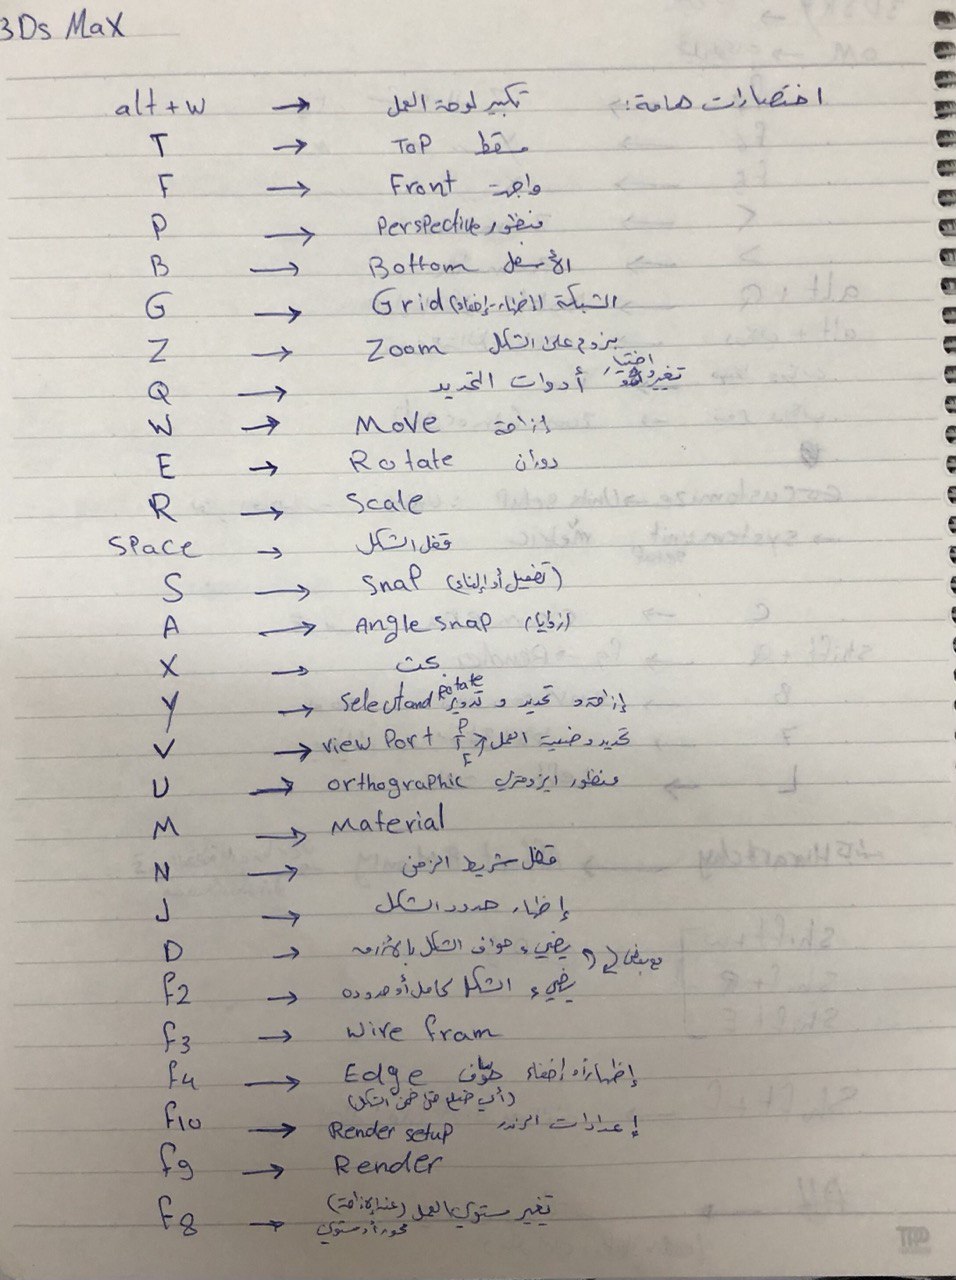 3Ds Max
اختصارات هامة:
alt + w → تكبير لوحة العمل
T → Top مسقط
F → Front واجهة
P → Perspective منظور
B → Bottom الأسفل
G → Grid الشبكة (إظهار-إخفاء)
Z → Zoom بزوم على الشكل
Q → أدوات التحديد تغير اختيار
W → Move إزاحة
E → Rotate دوران
R → Scale
Space → قفل الشكل
S → Snap (تفعيل أو إلغاء)
A → Angle snap (زوايا)
X → بحث
Y → Select and Rotate إزاحة و تحديد و تدوير
V → view Port P T F تحديد وضعية العمل
U → orthographic منظور ايزومتري
M → Material
N → قفل شريط الزمن
J → إظهار حدود الشكل
D → يضيء حواف الشكل بالأزرق
مع بعض
f2 → يضيء الشكل كامل أو حدوده
f3 → wire fram
f4 → Edge إظهار أو إخفاء حواف
(أي ضلع من ضمن الشكل)
f10 → Render setup إعدادات الرندر
f9 → Render
f8 → تغير مستوي العمل (عند الإزاحة)
محور أو مستوي